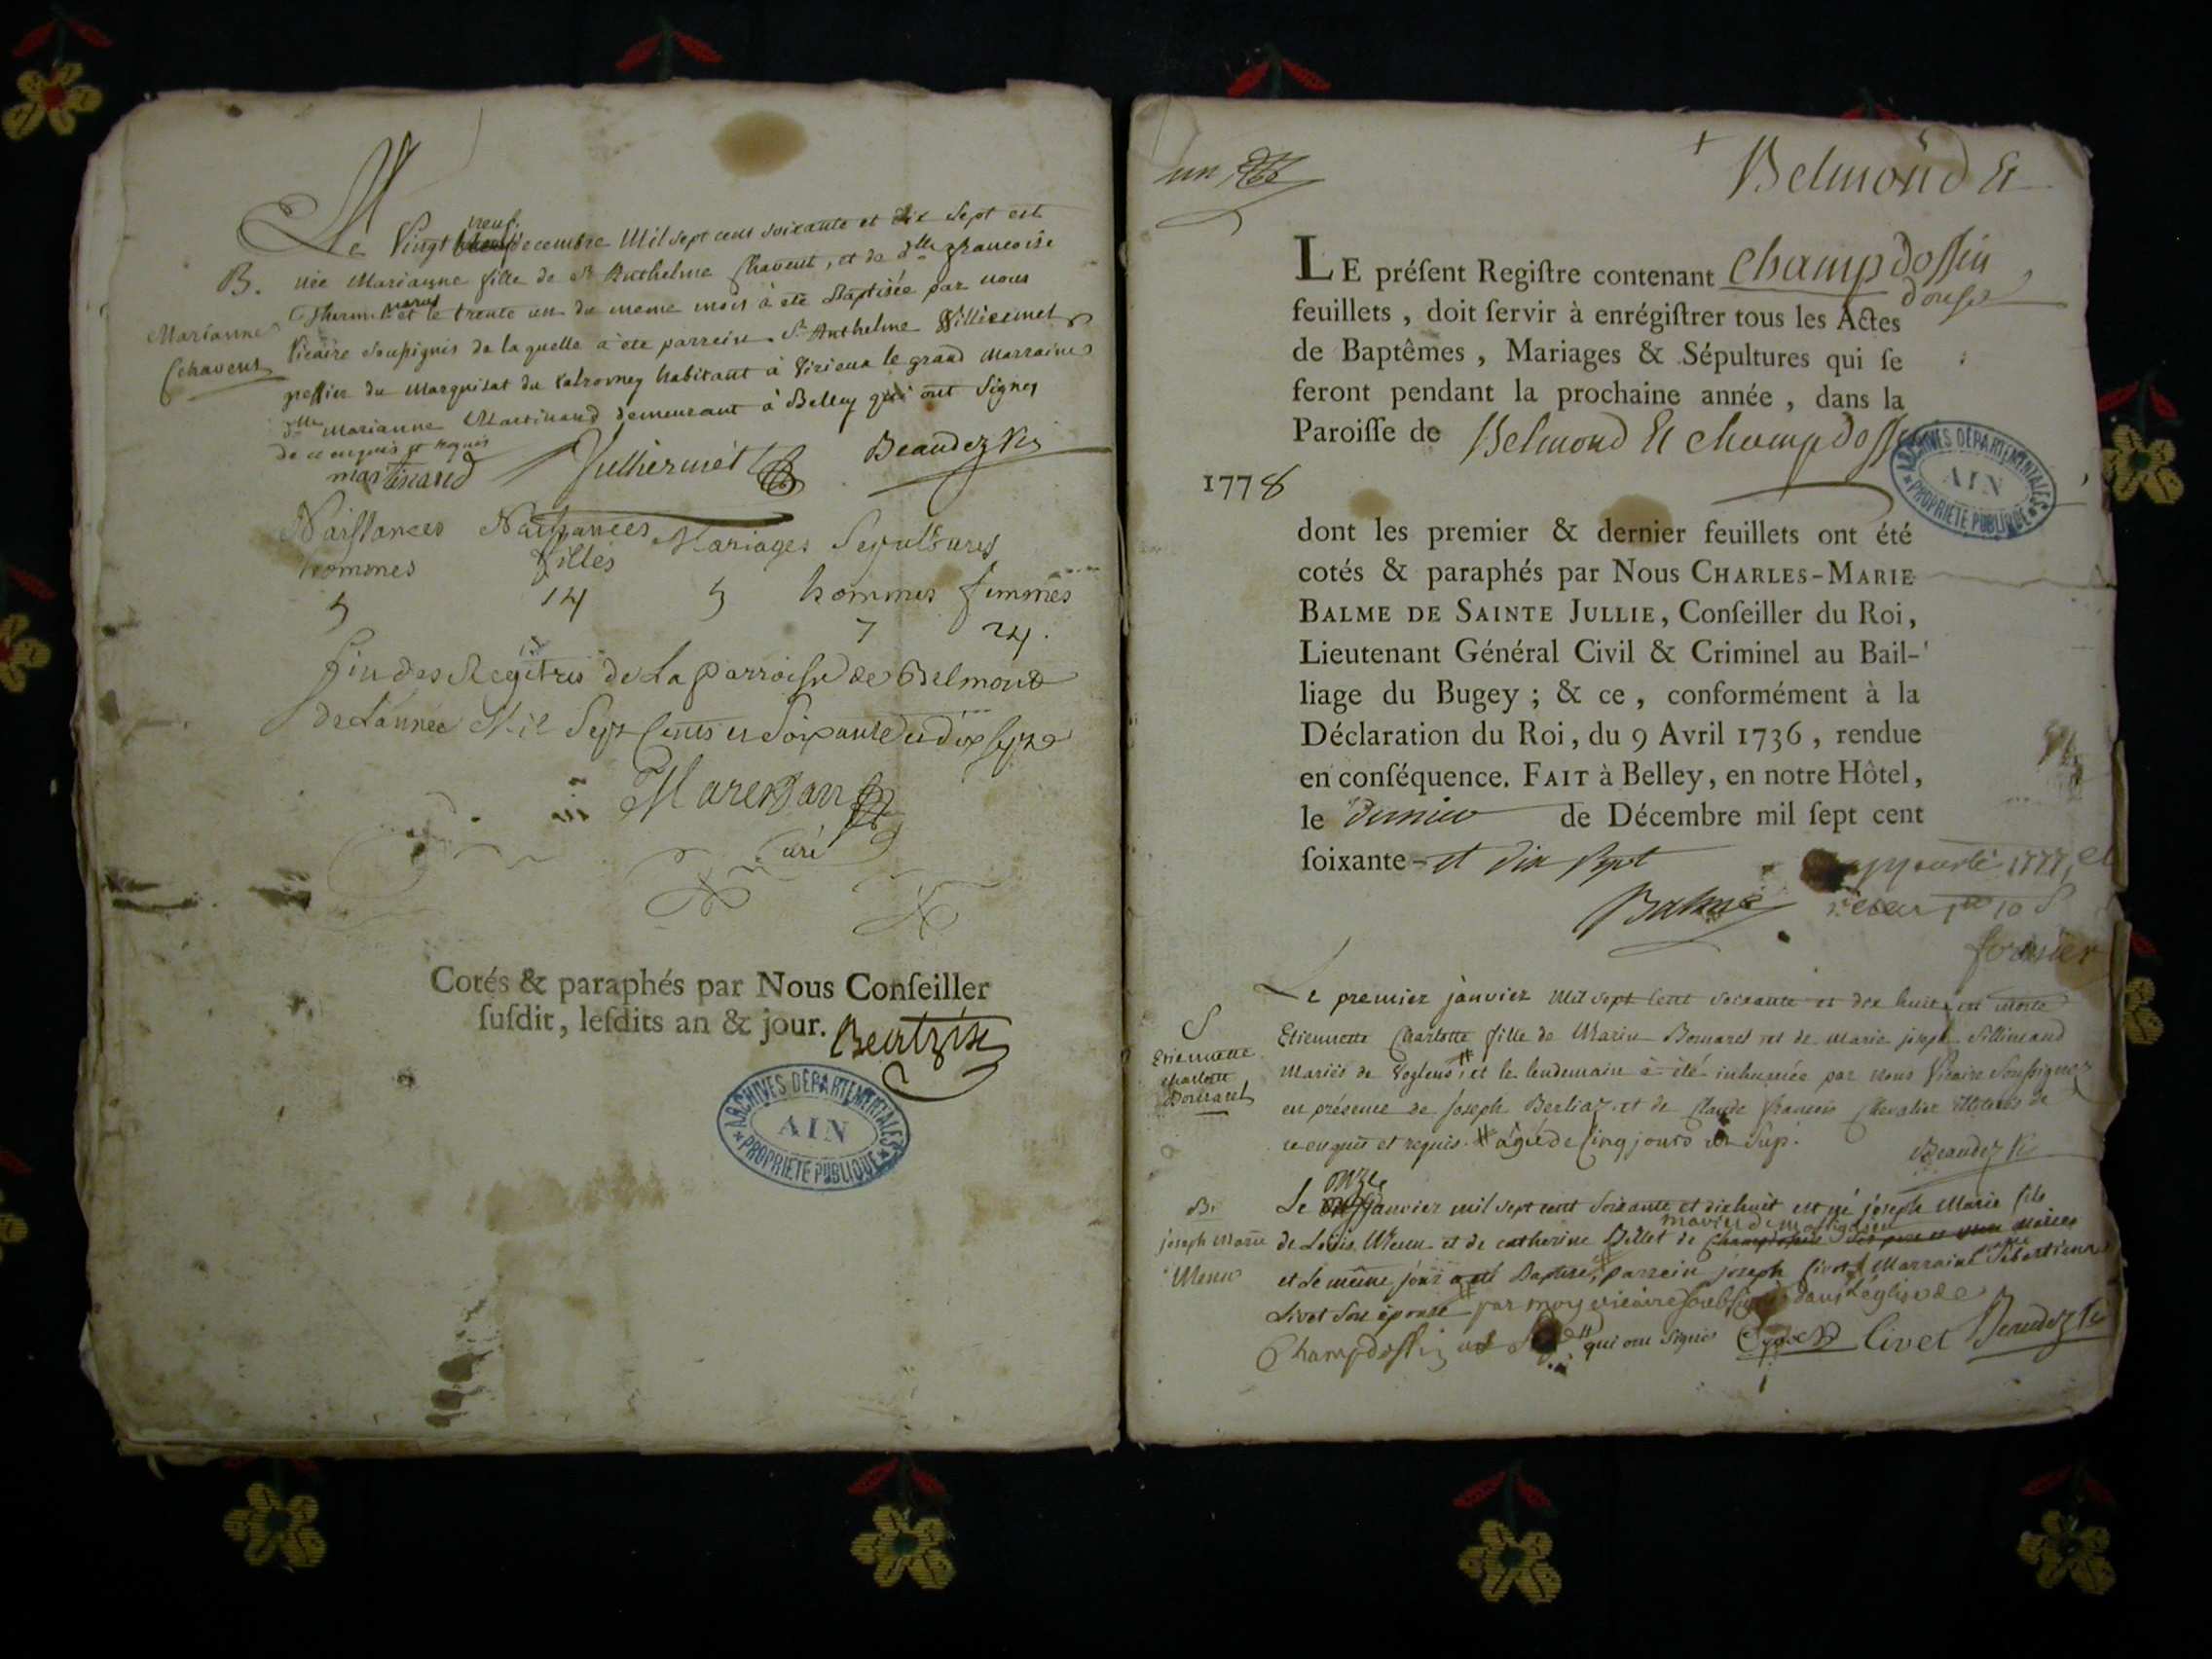 Le Vingt neuf decembre Mil sept cent soixante et dix sept est
B. née Marianne fille de Sr Anthelme Chavent, et de dlle francoise
et le trente un du meme mois à eté Baptisée par nous
Marianne
Chavent
Vicaire soussignés de la quelle à eté parrein Sr Anthelme Villiermet
greffier du Marquisat du Valromey habitant à Virieux le grand Marraine
dlle Marianne Martinand demeurant à Belley qui ont Signes
de ce enquis et requis
martinand Vulliermet Beaudez Vic
Naissances Naissances Mariages Sepultures
hommes filles
5 14 5 hommes femmes
7 24.
fin des Regitres de La parroisse de Belmont
de Lannee Mil Sept Cents et Soixante et dix sept
Marejban
Curé
Cotés & paraphés par Nous Conseiller
susdit, lesdits an & jour.
ARCHIVES DÉPARTEMENTALES
AIN
PROPRIÉTÉ PUBLIQUE
un
Belmond Et
LE présent Registre contenant Champdossin
douse
feuillets, doit servir à enrégistrer tous les Actes
de Baptêmes, Mariages & Sépultures qui se
feront pendant la prochaine année, dans la
Paroisse de Belmond Et Champdossin
ARCHIVES DÉPARTEMENTALES
AIN
PROPRIÉTÉ PUBLIQUE
1778
dont les premier & dernier feuillets ont été
cotés & paraphés par Nous CHARLES-MARIE
BALME DE SAINTE JULLIE, Conseiller du Roi,
Lieutenant Général Civil & Criminel au Bail-
liage du Bugey; & ce, conformément à la
Déclaration du Roi, du 9 Avril 1736, rendue
en conséquence. FAIT à Belley, en notre Hôtel,
le dernier de Décembre mil sept cent
soixante-et dix sept
apporté 1777, et
Balme
10 S
Le premier janvier Mil sept Cent soixante et dix huit est morte
S
Etiennette
Charlotte
Bornarel
Etiennette Charlotte fille de Marin Bornarel et de Marie joseph Sillimand
Mariés de Voglens # et le lendemain à été inhumée par nous Vicaire soussignez
en présence de joseph Berliaz et de Claude françois Chevalier illiterés de
ce enquis et requis. # Agée de Cinq jours
Beaudez Vic
onze
B.
joseph Marie
Menu
Le janvier mil sept cent soixante et dix huit est né joseph Marie fils
de Louis Menu et de catherine Billet de Champdossin
et le meine jour a eté Baptisé, # parrein joseph livet Marraine Sebastienne
Livet Son épouse # par moy vicaire soubsigné dans L'église de
Champdossin qui ont signés livet Beaudez Vic